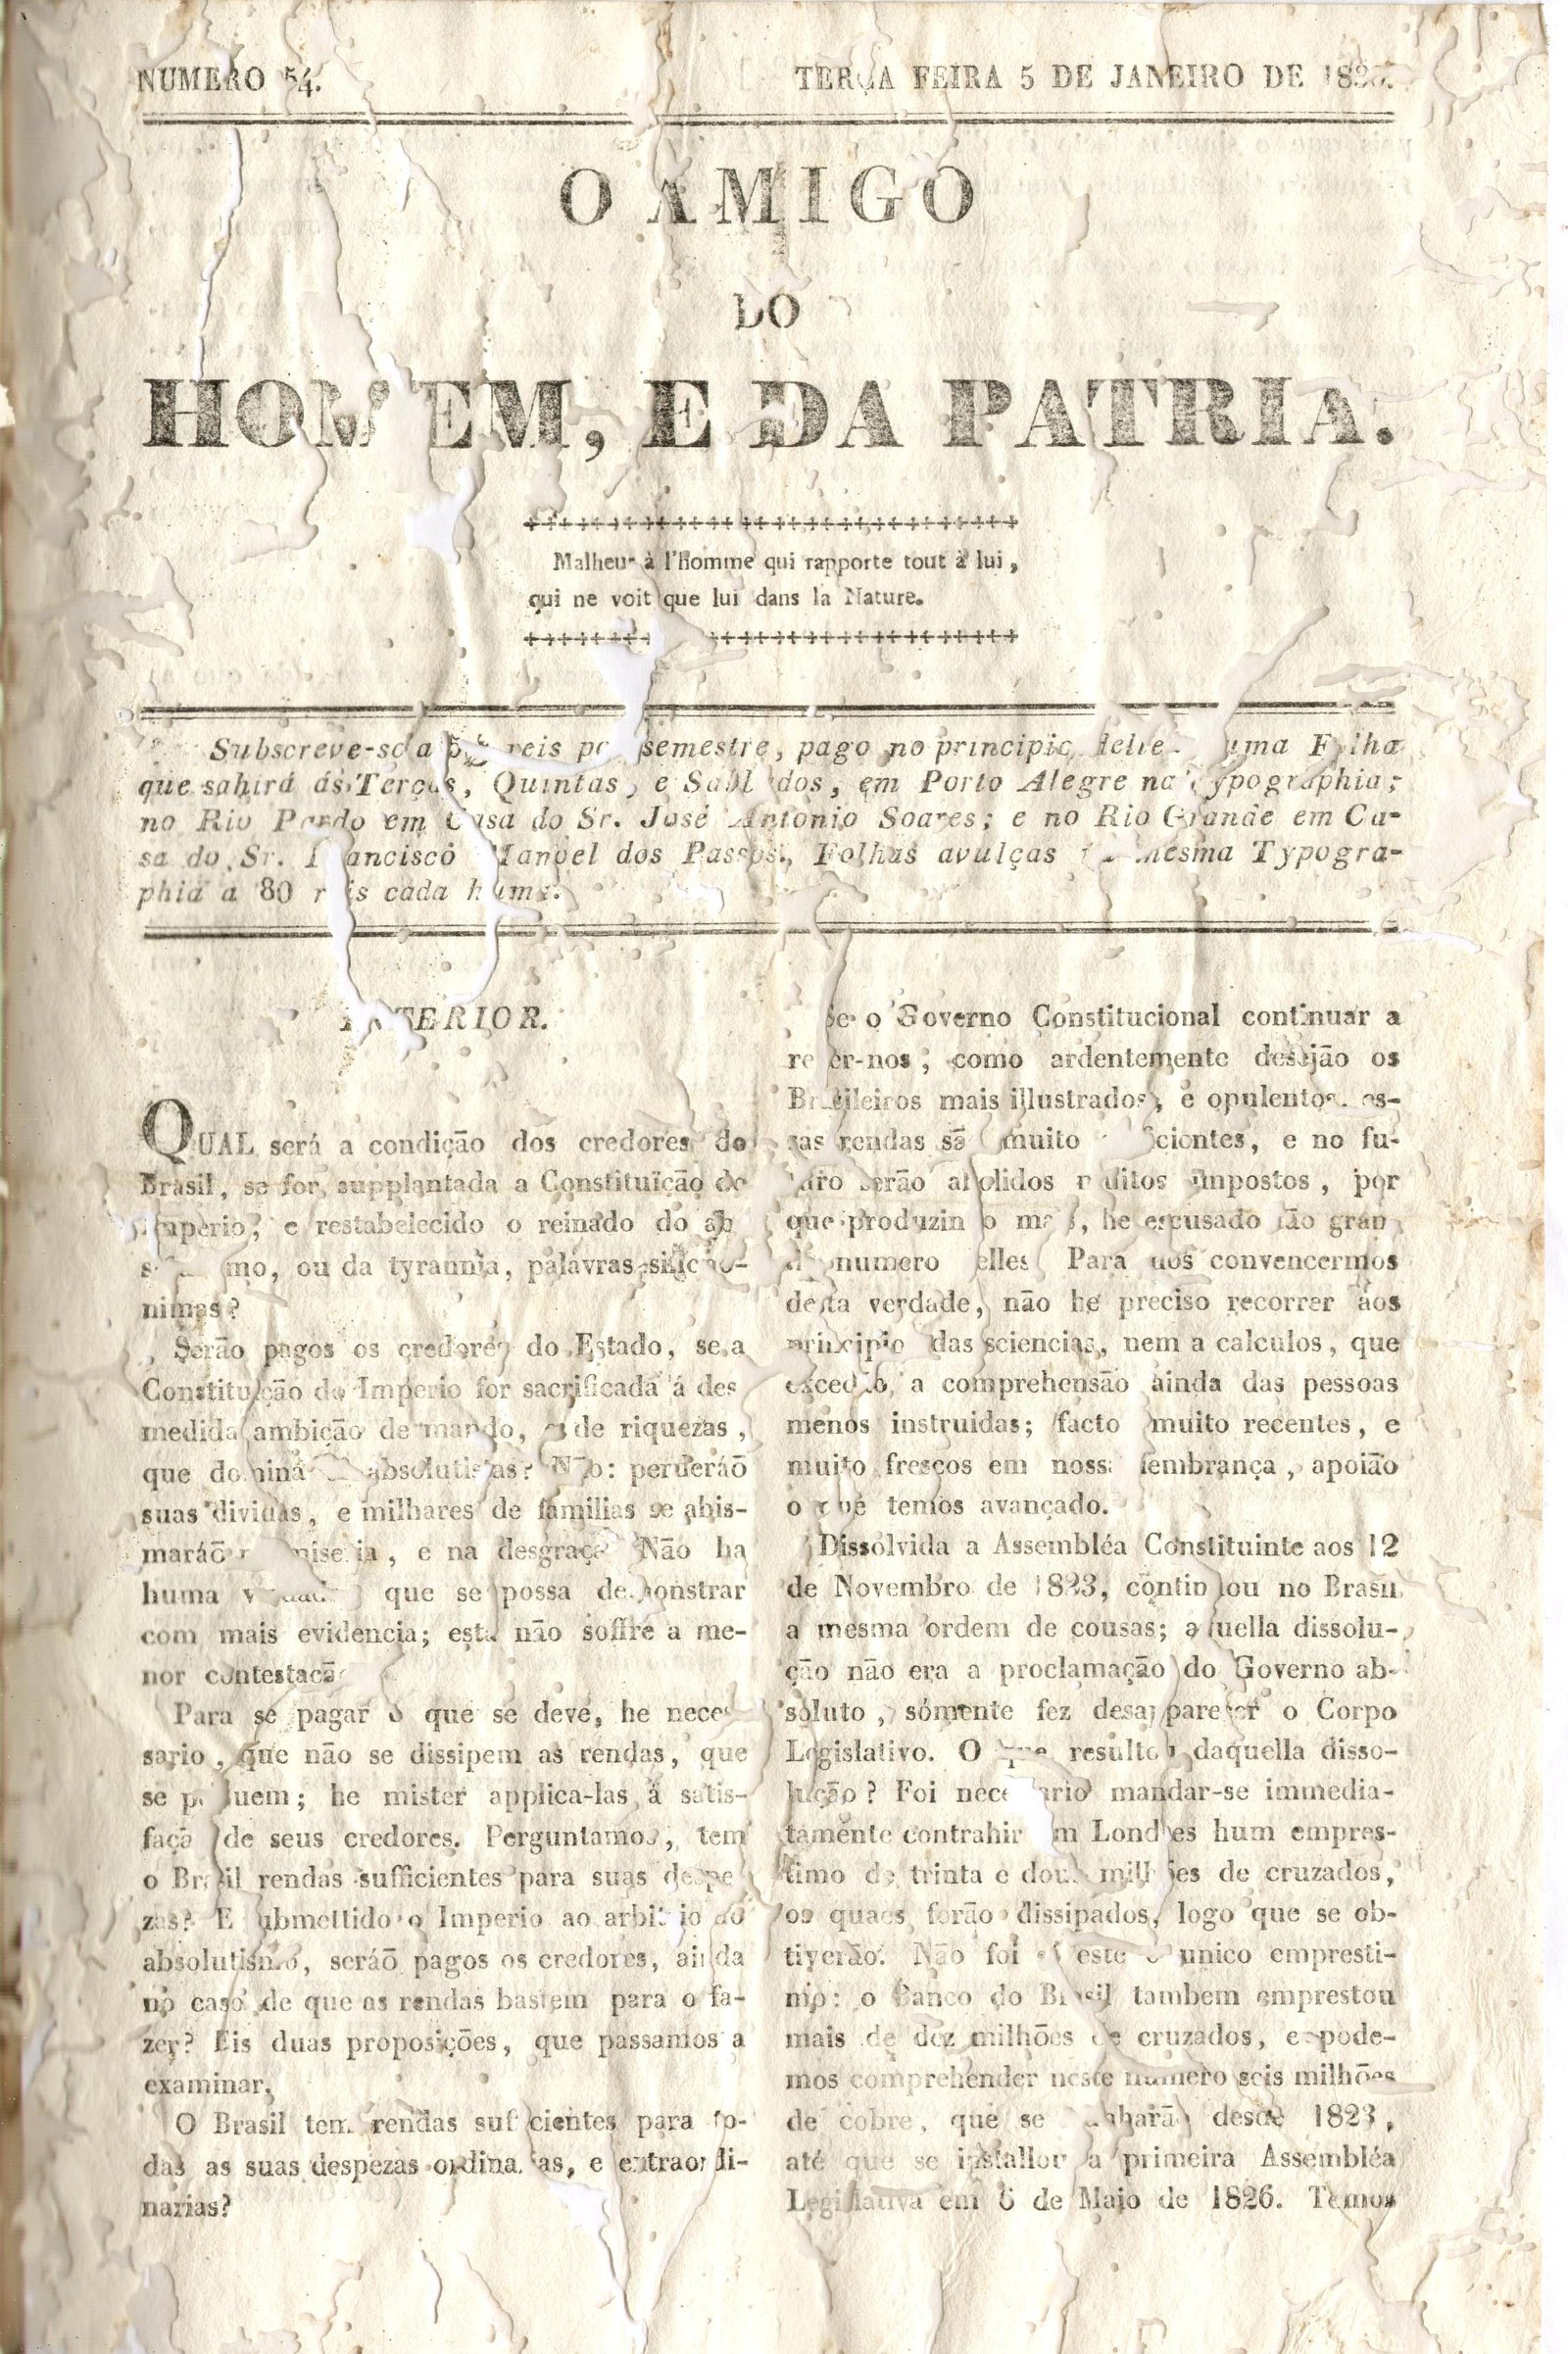 NUMERO 54.
TERÇA FEIRA 5 DE JANEIRO DE
O AMIGO
DO
HOMEM, E DA PATRIA.
Malheur à l'homme qui rapporte tout à lui,
qui ne voit que lui dans la Nature.
Subscreve-se a reis por semestre, pago no principio delle. uma Folha
que sahirá ás Terças, Quintas, e Sabbados, em Porto Alegre na Typographia;
no Rio Pardo em Casa do Sr. José Antonio Soares; e no Rio Grande em Ca-
sa do Sr. Francisco Manoel dos Passos., Folhas avulças mesma Typogra-
phia a 80 reis cada huma.
INTERIOR.
QUAL será a condição dos credores do
Brasil, se for supplantada a Constituição do
Imperio, e restabelecido o reinado do ab
ou da tyrannia, palavras
nimas?
Serão pagos os credores do Estado, se a
Constituição do Imperio for sacrificada á des
medida ambição de mando, e de riquezas,
que domina absolutistas? Não: perderáõ
suas dividas, e milhares de familias se abis-
maráõ miseria, e na desgraça Não ha
huma que se possa demonstrar
com mais evidencia; esta não soffre a me-
nor contestação
Para se pagar o que se deve, he neces-
sario, que não se dissipem as rendas, que
se possuem; he mister applica-las á satis-
fação de seus credores. Perguntamos, tem
o Brasil rendas sufficientes para suas despe
zas? E submettido o Imperio ao arbitrio do
absolutismo, seráõ pagos os credores, ainda
no caso de que as rendas bastem para o fa-
zer? Eis duas proposições, que passamos a
examinar.
O Brasil tem rendas sufficientes para to-
das as suas despezas ordinarias, e extraordi-
narias?
Se o Governo Constitucional continuar a
reger-nos, como ardentemente desejão os
Brasileiros mais illustrados, e opulentos. es-
sas rendas são muito sufficientes, e no fu-
turo serão abolidos muitos impostos, por
que produzindo mais, he escusado tão gran
numero delles Para nos convencermos
desta verdade, não he preciso recorrer aos
principios das sciencias, nem a calculos, que
excedão a comprehensão ainda das pessoas
menos instruidas; factos muito recentes, e
muito frescos em nossa lembrança, apoião
o que temos avançado.
Dissolvida a Assembléa Constituinte aos 12
de Novembro de 1823, continuou no Brasil
a mesma ordem de cousas; aquella dissolu-
ção não era a proclamação do Governo ab-
soluto, sómente fez desapparecer o Corpo
Legislativo. O que resultou daquella disso-
lução? Foi necessario mandar-se immedia-
tamente contrahir em Londres hum empres-
timo de trinta e dous milhões de cruzados,
os quaes forão dissipados, logo que se ob-
tiverão. Não foi este o unico empresti-
mo: o Banco do Brasil tambem emprestou
mais de dez milhões de cruzados, e pode-
mos comprehender neste numero seis milhões
de cobre, que se cunharão desde 1823,
até que se installou a primeira Assembléa
Legislativa em 6 de Maio de 1826. Temos